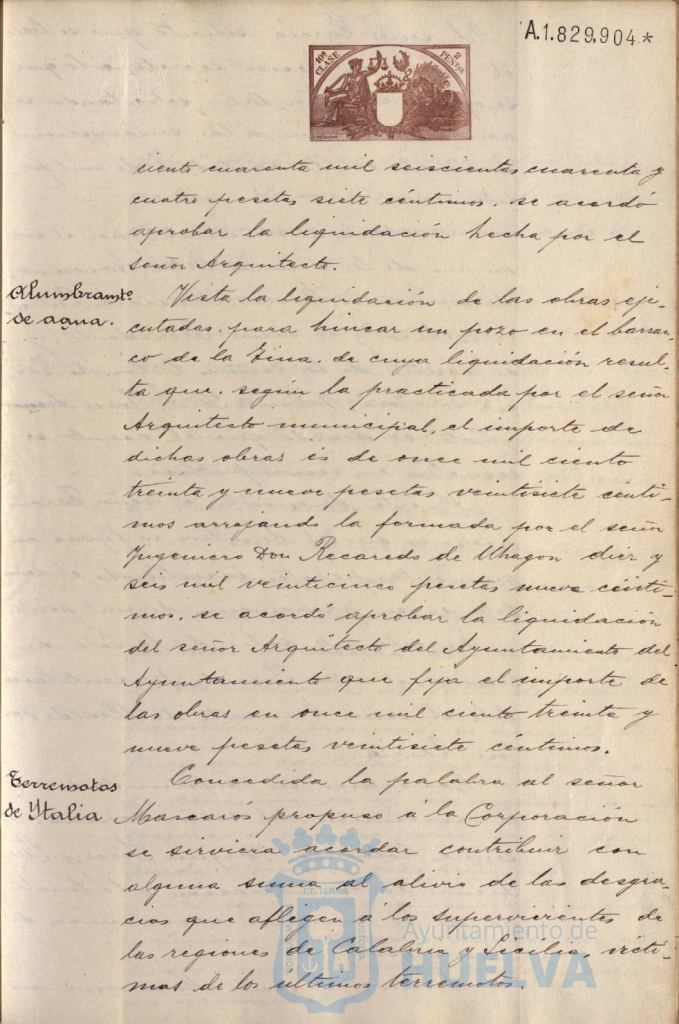 A.1.829.904*
10ª CLASE
2 PESETAS
ciento cuarenta mil seiscientas cuarenta y
cuatro pesetas siete céntimos. se acordó
aprobar la liquidación hecha por el
señor Arquitecto.
Alumbramto
de agua.
Vista la liquidación de las obras eje-
cutadas para hincar un pozo en el barran-
co de la Zina. de cuya liquidación resul-
ta que. según la practicada por el señor
Arquitecto municipal. el importe de
dichas obras es de once mil ciento
treinta y nueve pesetas veintisiete cénti-
mos arrojando la formada por el señor
Yngeniero Don Recaredo de Uhagon diez y
seis mil veinticinco pesetas nueve cénti-
mos. se acordó aprobar la liquidación
del señor Arquitecto del Ayuntamiento del
Ayuntamiento que fija el importe de
las obras en once mil ciento treinta y
nueve pesetas veintisiete céntimos.
Terremotos
de Ytalia
Concedida la palabra al señor
Mascarós propuso á la Corporación
se sirviera acordar contribuir con
alguna suma al alivio de las desgra-
cias que aflegen á los supervivientes de
las regiones de Calabria y Sicilia, vícti-
mas de los últimos terremotos.
Ayuntamiento de
HUELVA